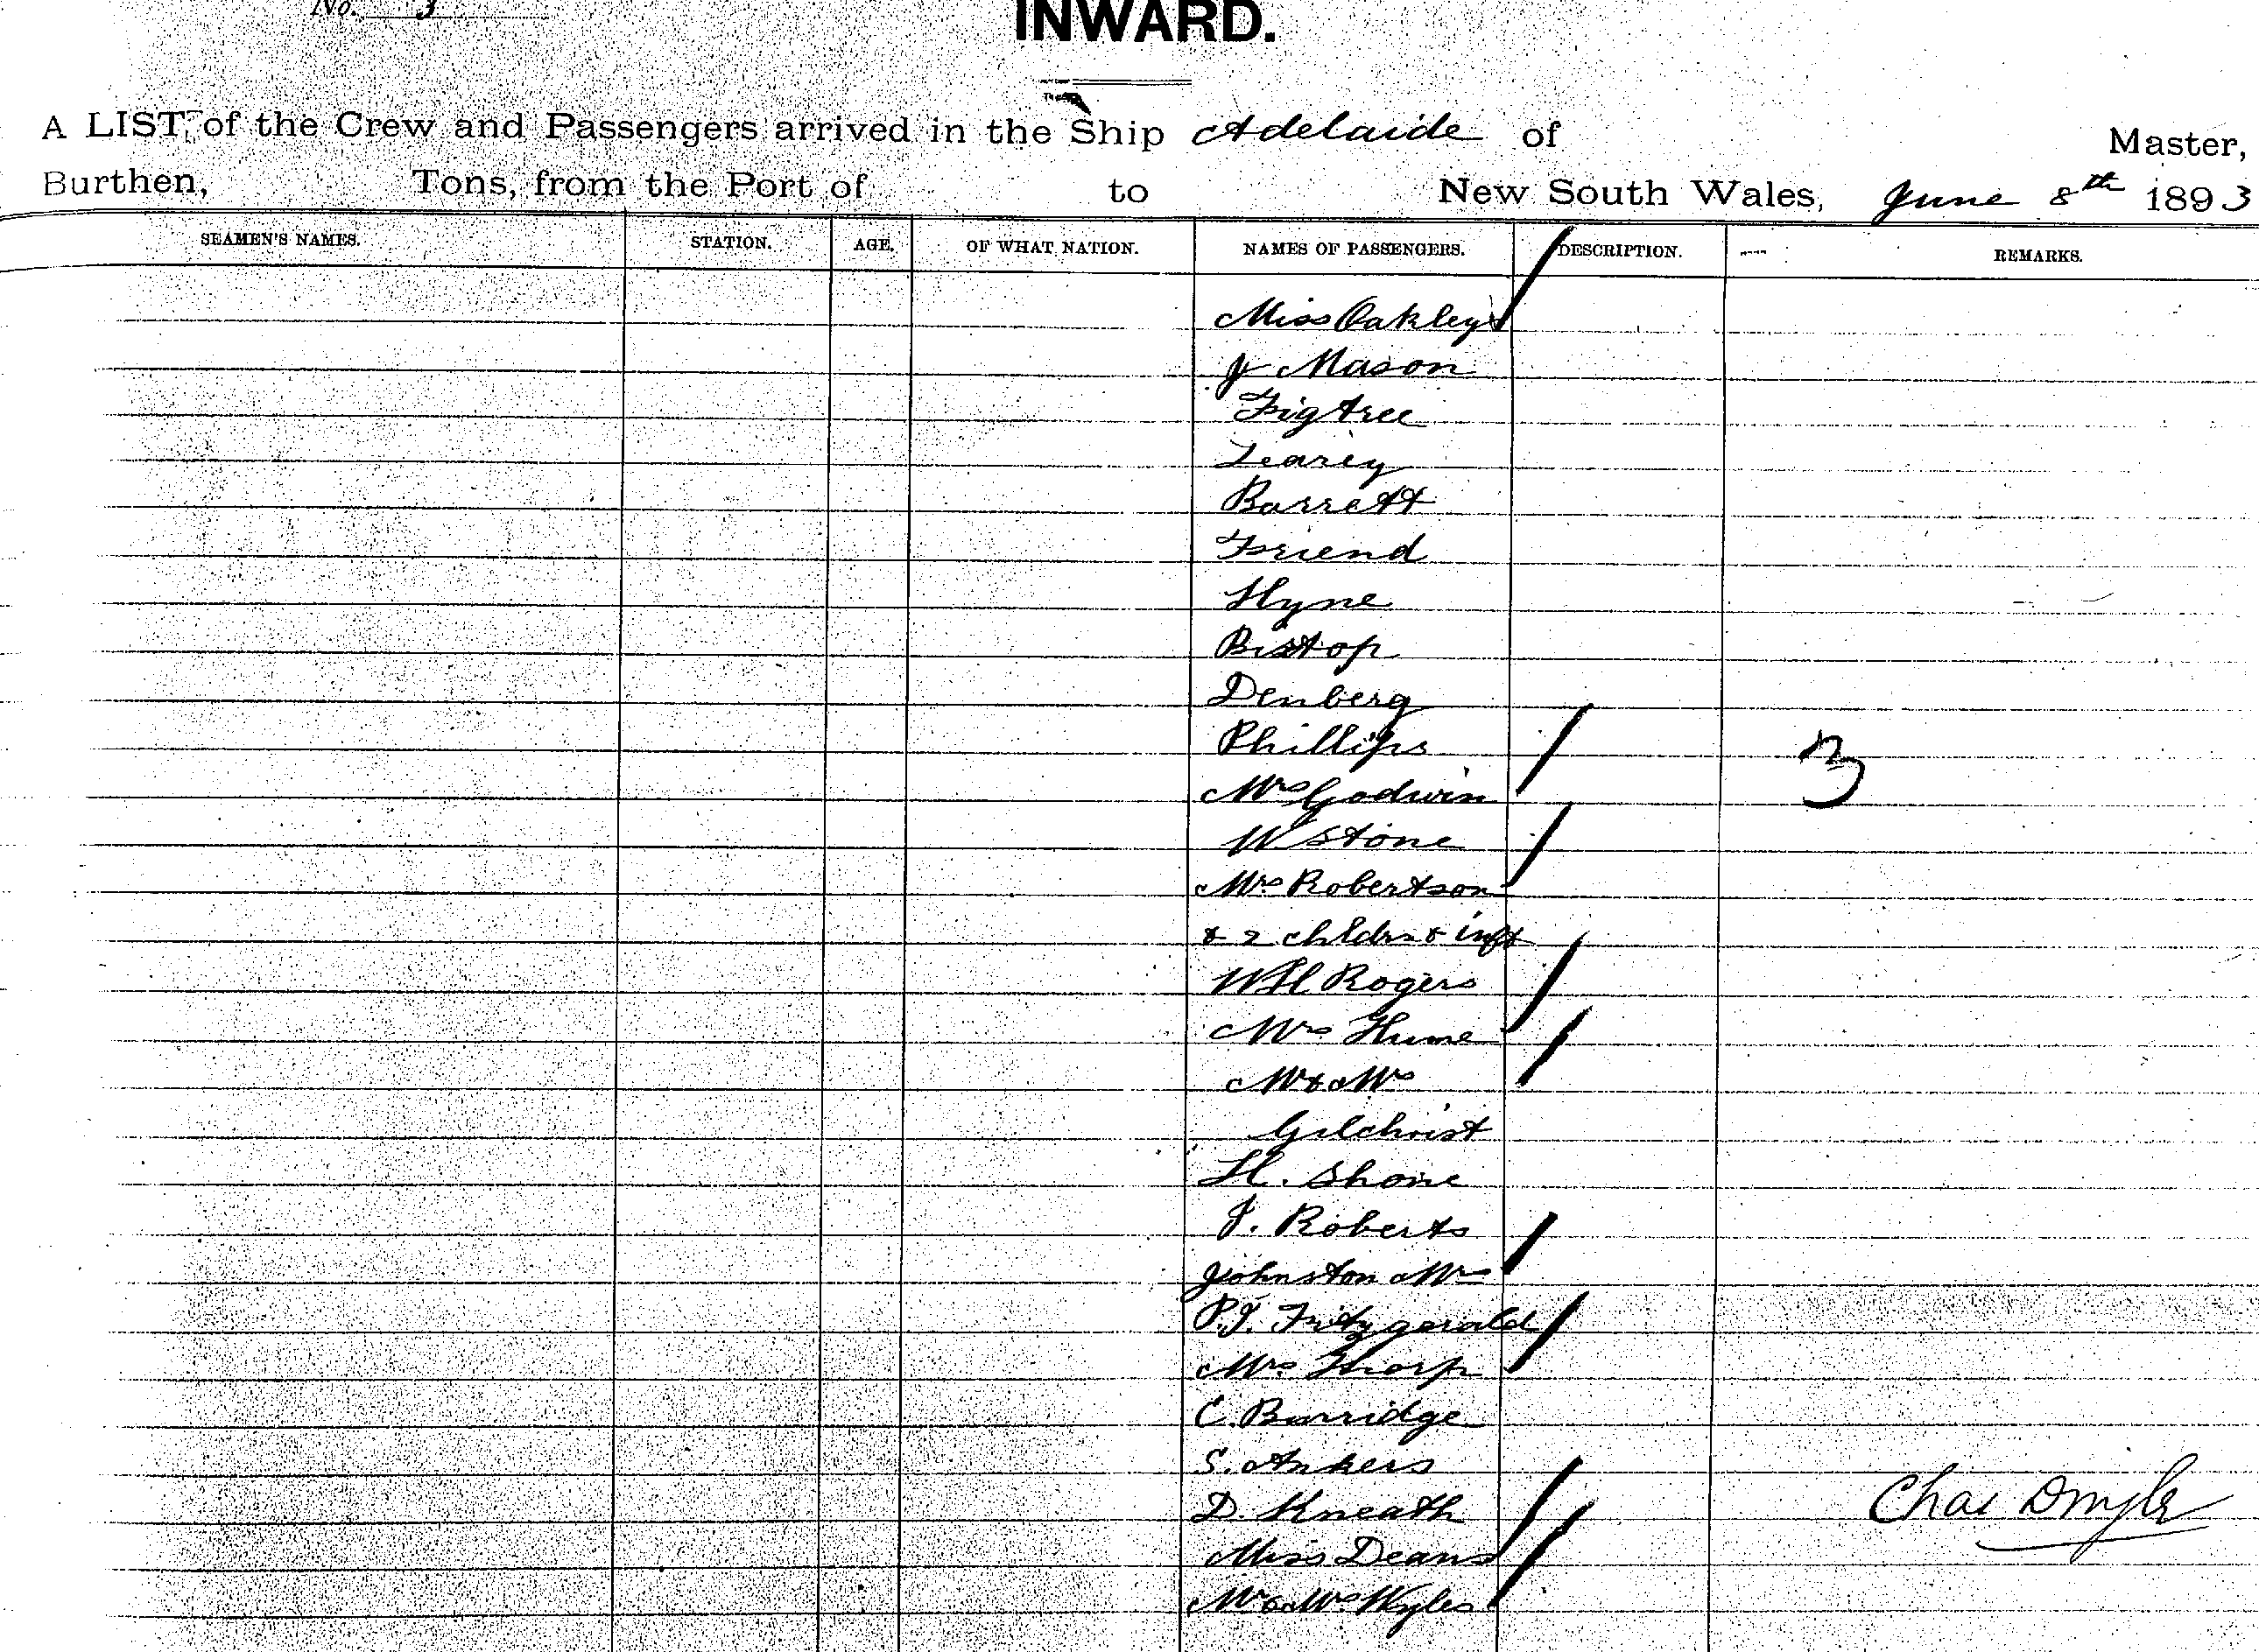 No. 3
INWARD.
A LIST of the Crew and Passengers arrived in the Ship Adelaide of Master,
Burthen, Tons, from the Port of to New South Wales, June 8th 1893
SEAMEN'S NAMES. STATION. AGE. OF WHAT NATION. NAMES OF PASSENGERS. DESCRIPTION. REMARKS.
Miss Oakley
J Mason
Figtree
Learey
Barrett
Friend
Hyne
Bishop
Denberg
Phillips
3
Mrs Godwin
W Stone
Mrs Robertson
& 2 chldrn & inft
W H Rogers
Mrs Hume
Mr & Mrs
Gilchrist
H. Shone
J. Roberts
Johnston Mr
P.J. Fitzgerald
Mrs Thorp
C. Burridge
S. Ankers
D. Kneath
Chas
Miss Deans
Mr & Mrs Wyles